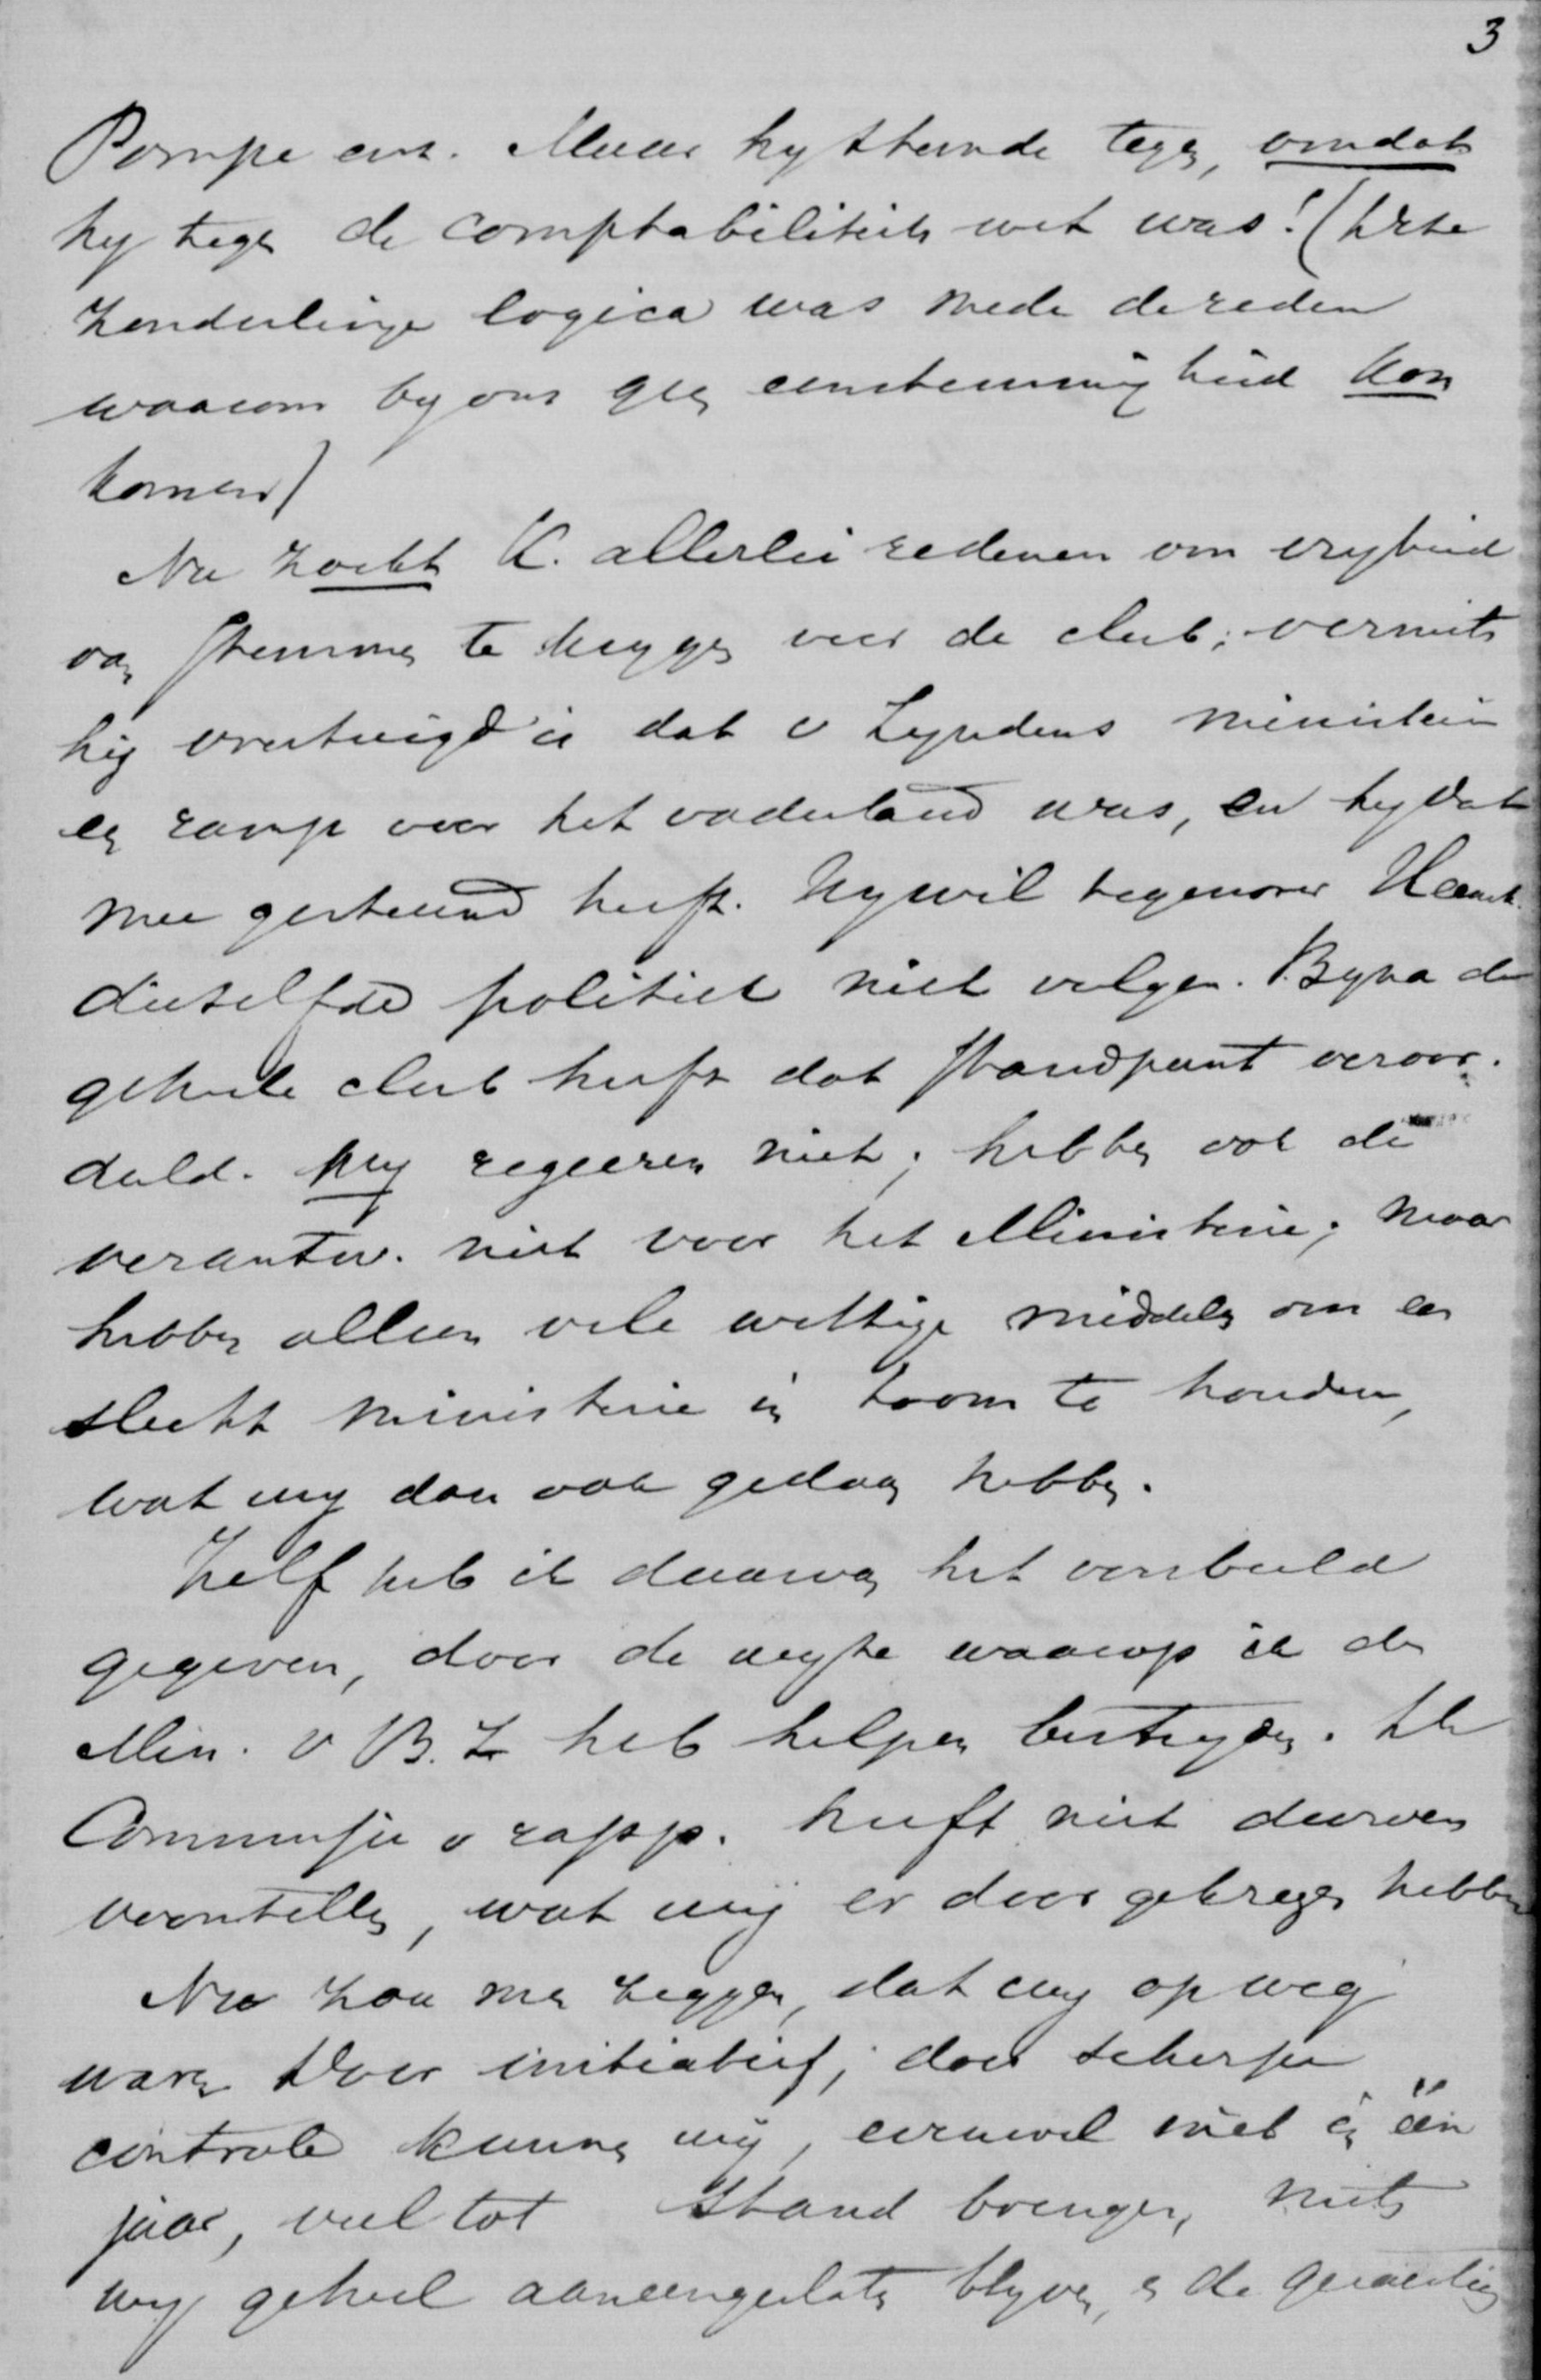 3
Pompe enz. Maar hy stemde tegen, omdat
hy tegen de comptabiliteits wet was! (Deze
zonderlinge logica was mede de reden
waarom by ons geen eenstemmigheid kon
komen)
Nu zocht K. allerlei redenen om vryheid
van stemmen te krygen voor de club; vermits
hij overtuigd is dat v Lyndens ministerie
een ramp voor het vaderland was, en hy dat
mee gesteund heeft. Hy wil tegenover Heemsk.
diezelfde politiek niet volgen. Byna de
geheele club heeft dat standpunt veroor-
deeld. Wy regeeren niet; hebben ook de
verantw. niet voor het Ministerie; maar
hebben alleen vele wettige middelen om een
slecht ministerie in toom te houden,
wat wy dan ook gedaan hebben.
Zelf heb ik daarvan het voorbeeld
gegeven, door de wyze waarop ik den
Min. v B. Z heb helpen bestryden. De
Commissie v rapp. heeft niet durven
voorstellen, wat wij er door gekregen hebben
Nu zou men zeggen, dat wy op weg
waren. Door initiatief; door scherpe
controle kunnen wij, evenwel niet in één
jaar, veel tot stand brengen, mits
wy geheel aaneengesloten blyven, en de